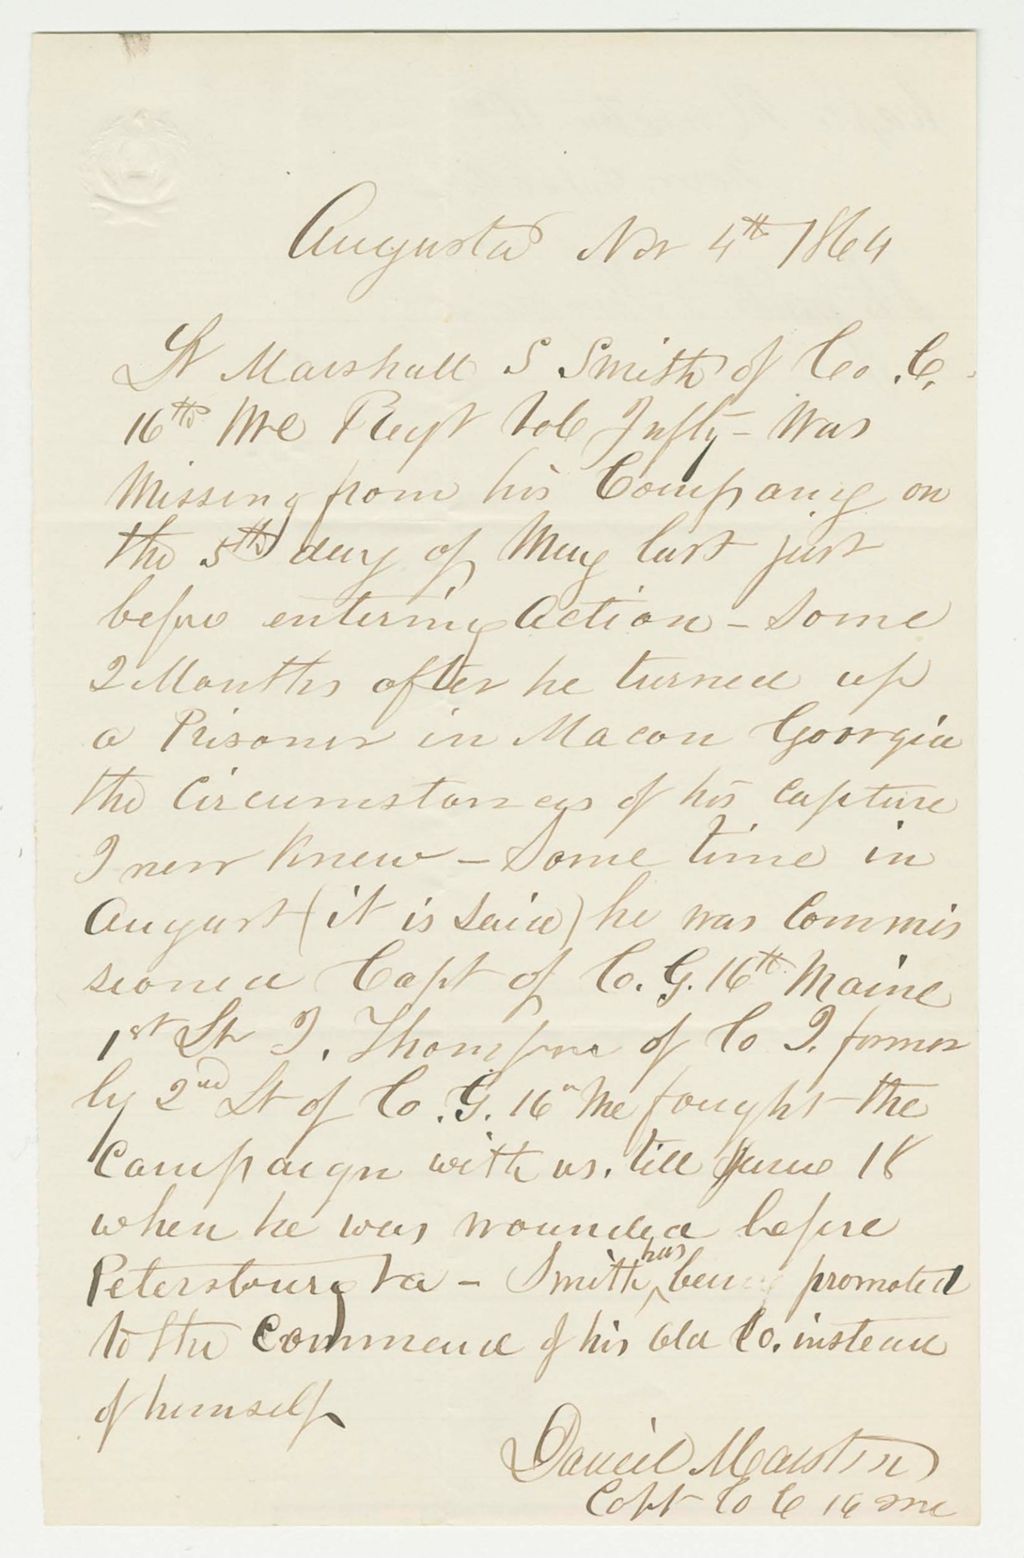 Augusta Nov 4th 1864
Lt Marshall S Smith of Co. C.
16th Me Regt Vol Infty - Was
Missing from his Company on
the 5th day of May last just
before entering Action - Some
2 Months after he turned up
a Prisoner in Macon Georgia
the Circumstances of his Capture
I never Knew - Some time in
August (it is said) he was Commis
sioned Capt of C. G. 16th Maine
1st Lt I. Thompson of Co I. former
ly 2nd Lt of Co. G. 16" Me fought the
Campaign with us. till June 18
when he was wounded before
Petersburg Va - Smith has been promoted
to the Command of his Old Co. instead
of himself
Daniel Marston
Capt Co C 16 Me